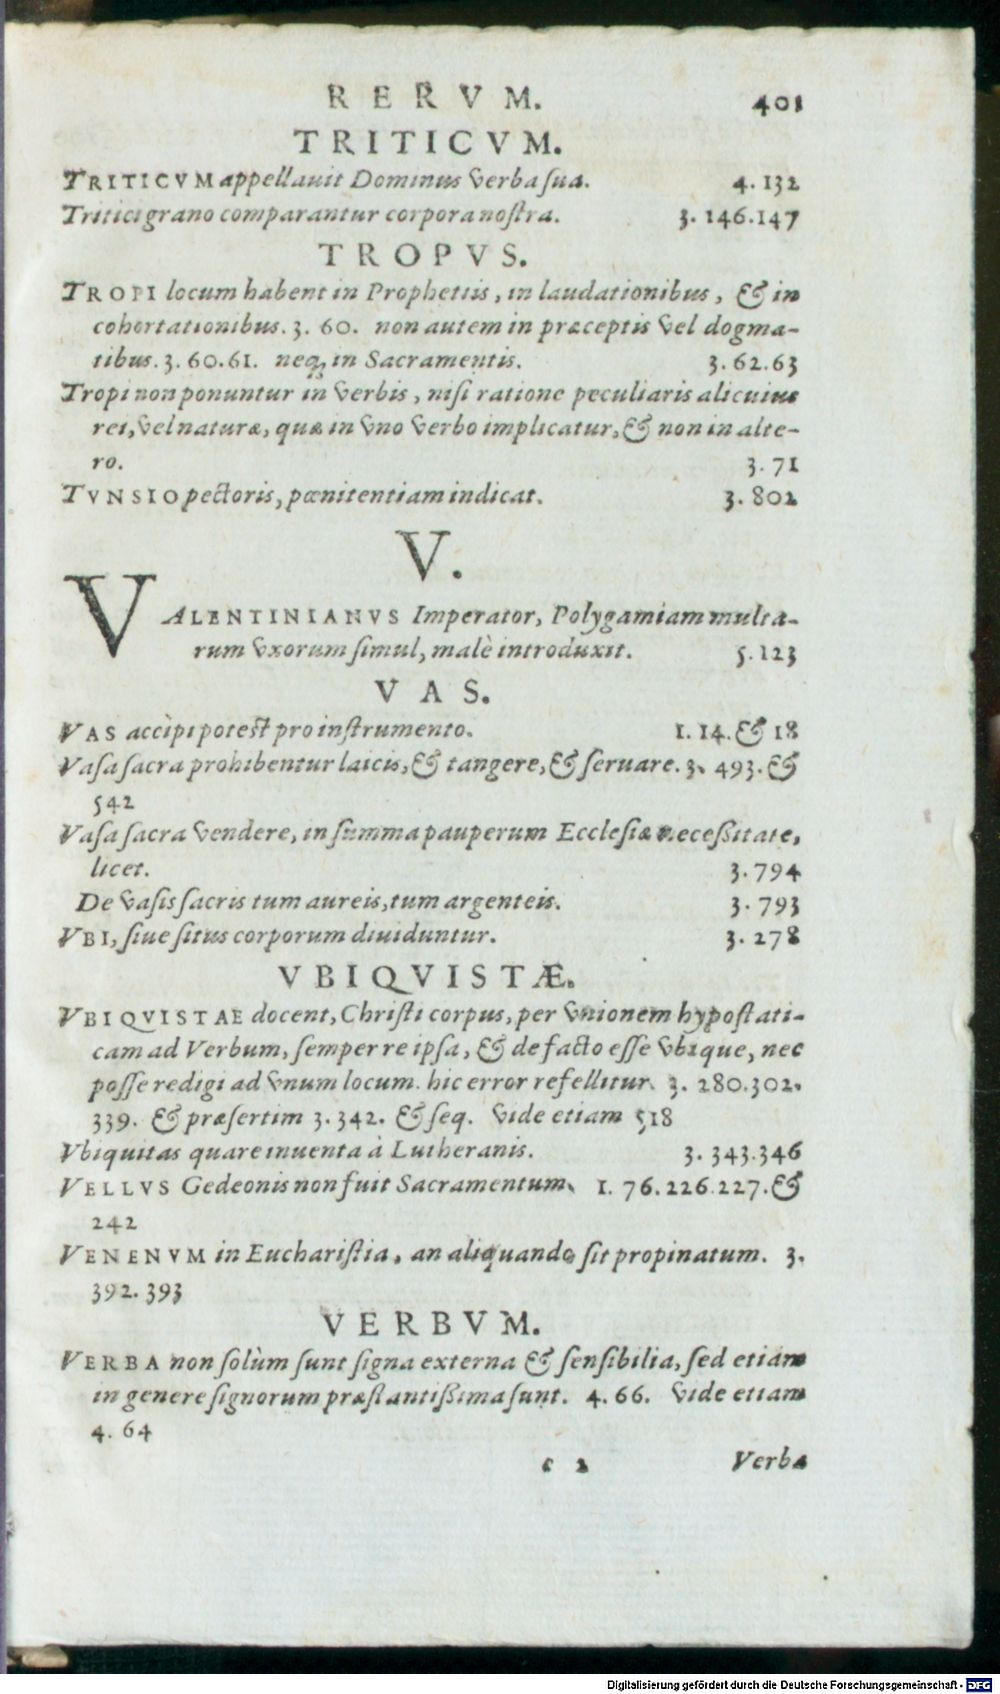 RERVM. 401
TRITICVM.
TRITICVM appellauit Dominus verba sua. 4. 132
Tritici grano comparantur corpora nostra. 3. 146.147
TROPVS.
TROPI locum habent in Prophetiis, in laudationibus, & in
cohortationibus. 3. 60. non autem in præceptis vel dogma-
tibus. 3. 60.61. neq; in Sacramentis. 3. 62.63
Tropi non ponuntur in verbis, nisi ratione peculiaris alicuius
rei, vel naturæ, quæ in vno verbo implicatur, & non in alte-
ro. 3. 71
TVNSIO pectoris, pœnitentiam indicat. 3. 802
V.
VALENTINIANVS Imperator, Polygamiam multa-
rum vxorum simul, malè introduxit. 5. 123
VAS.
VAS accipi potest pro instrumento. 1. 14. & 18
Vasa sacra prohibentur laicis, & tangere, & seruare. 3. 493. &
542
Vasa sacra vendere, in summa pauperum Ecclesiæ necessitate,
licet. 3. 794
De vasis sacris tum aureis, tum argenteis. 3. 793
VBI, siue situs corporum diuiduntur. 3. 278
VBIQVISTÆ.
VBIQVISTAE docent, Christi corpus, per vnionem hypostati-
cam ad Verbum, semper re ipsa, & de facto esse vbique, nec
posse redigi ad vnum locum. hic error refellitur. 3. 280.302.
339. & præsertim 3. 342. & seq. vide etiam 518
Vbiquitas quare inuenta à Lutheranis. 3. 343.346
VELLVS Gedeonis non fuit Sacramentum. 1. 76.226.227. &
242
VENENVM in Eucharistia, an aliquando sit propinatum. 3.
392. 393
VERBVM.
VERBA non solùm sunt signa externa & sensibilia, sed etiam
in genere signorum præstantissima sunt. 4. 66. vide etiam
4. 64
c 2 Verba
Digitalisierung gefördert durch die Deutsche Forschungsgemeinschaft - DFG